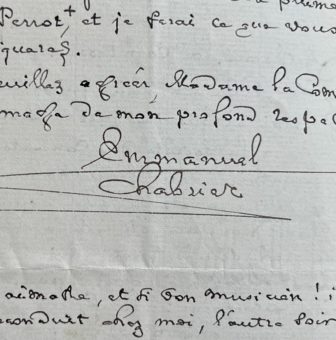 Perrot, et je ferai ce que vous
querez.
euillez agréer, Madame la Com
mage de mon profond respe
Emmanuel
Chabrier
aimable, et si bon musicien ! i
econduit chez moi, l'autre soir